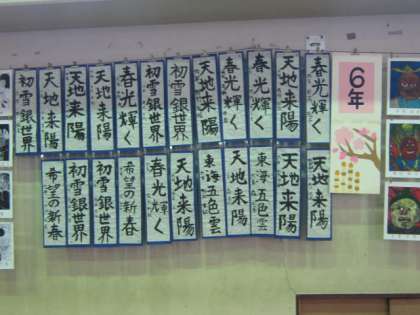 6年
春光輝く
天地来陽
春光輝く
春光輝く
天地来陽
初雪銀世界
初雪銀世界
春光輝く
天地来陽
天地来陽
天地来陽
初雪銀世界
天地来陽
天地来陽
東海五色雲
天地来陽
東海五色雲
天地来陽
春光輝く
希望の新春
初雪銀世界
初雪銀世界
希望の新春